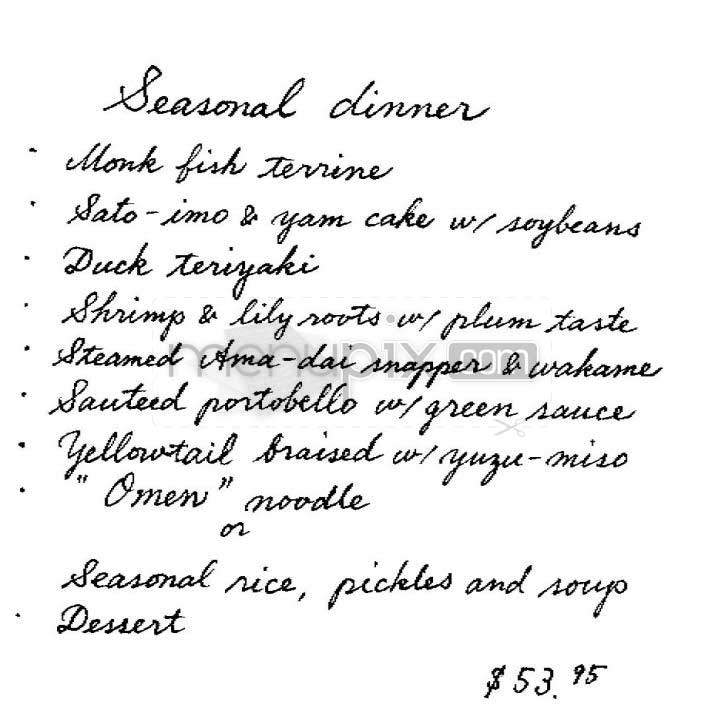 Seasonal dinner
· Monk fish terrine
· Sato-imo & yam cake w/ soybeans
· Duck teriyaki
· Shrimp & lily roots w/ plum taste
· Steamed Ama-dai snapper & wakame
· Sauteed portobello w/ green sauce
· Yellowtail braised w/ yuzu-miso
· "Omen" noodle
or
Seasonal rice, pickles and soup
· Dessert
$53.95
menupix.com